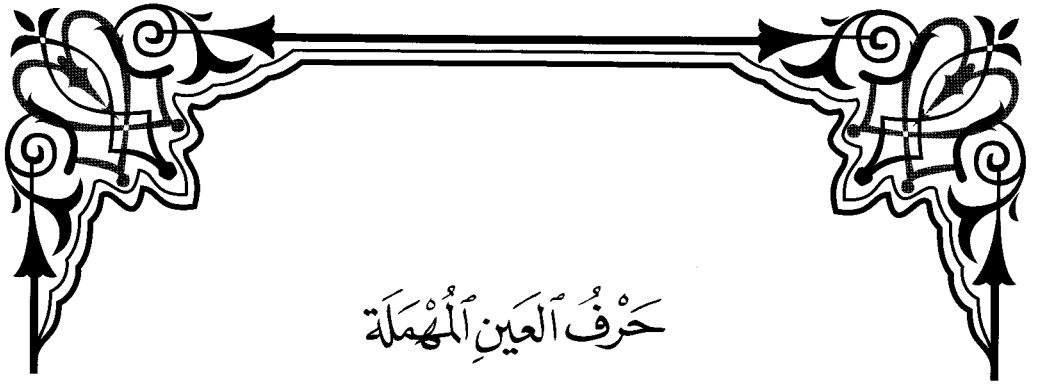 حَرْفُ ٱلعَينِ ٱلْمُهْمَلَة